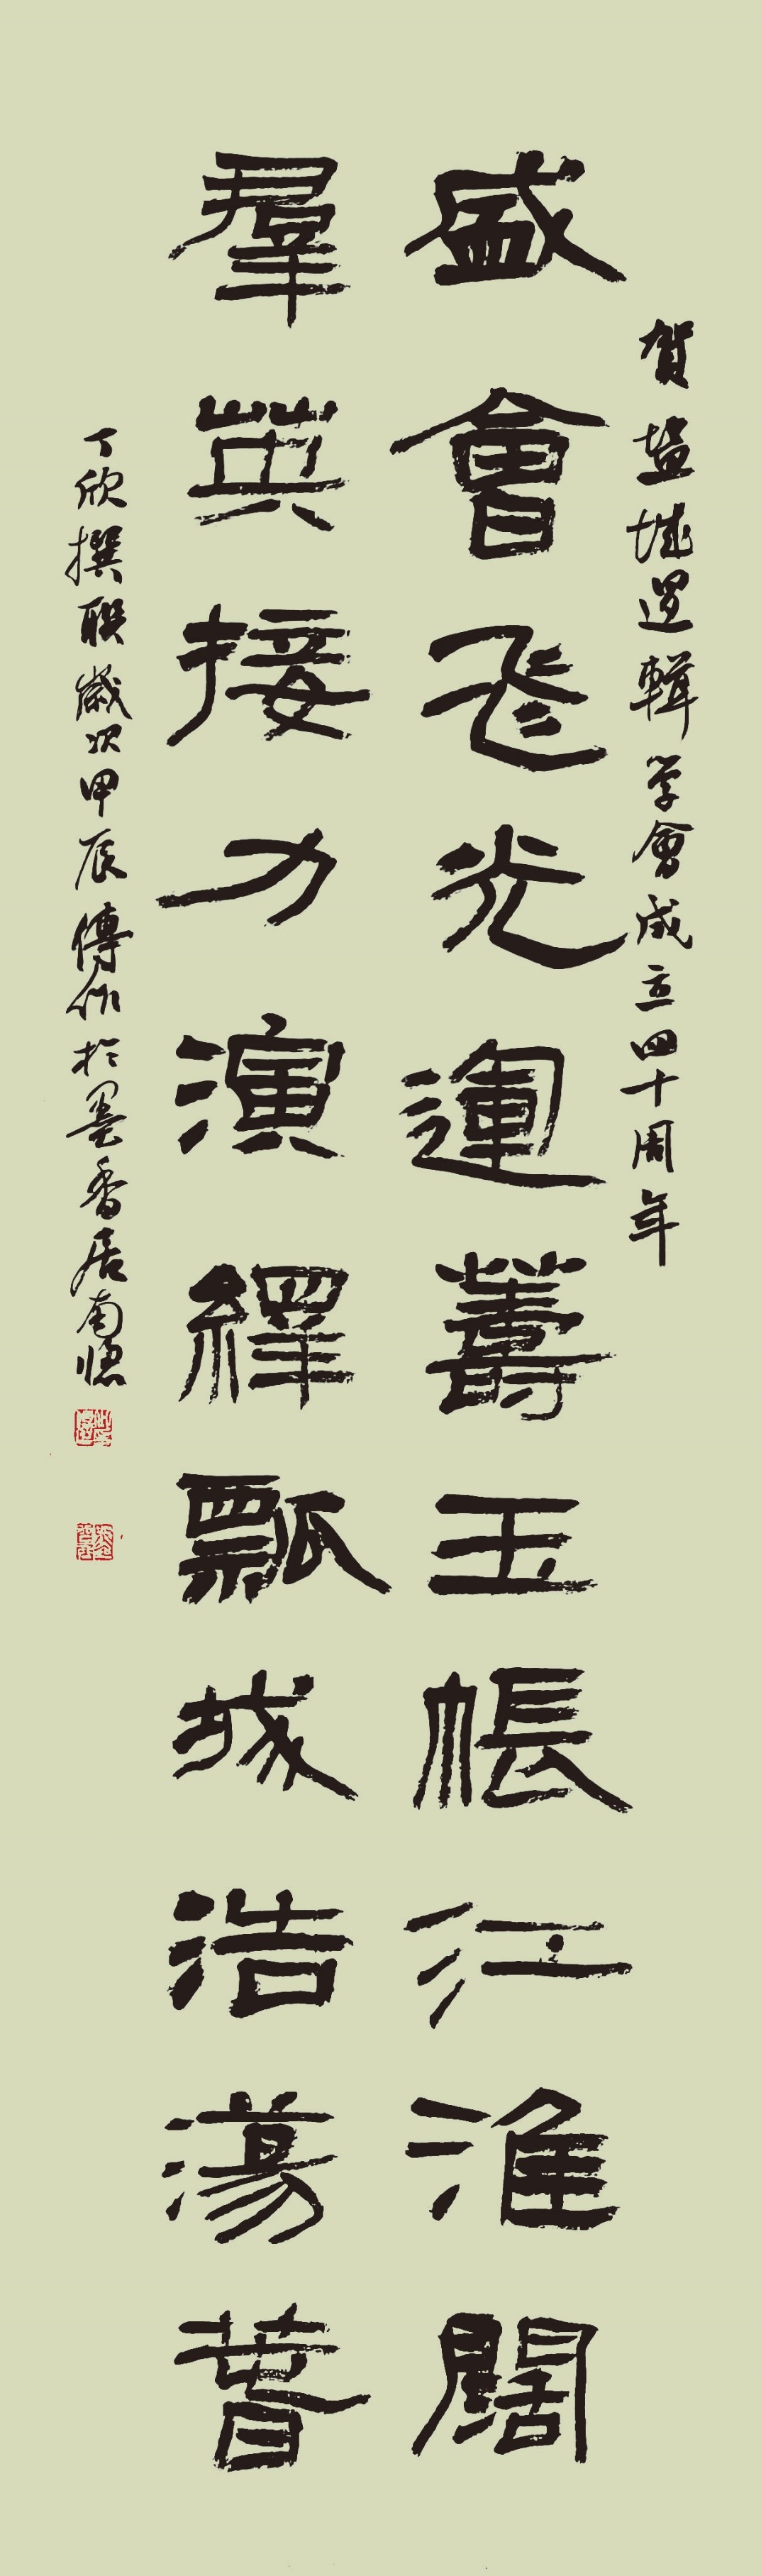 賀盐城逻輯学會成立四十周年
盛會飛光運籌玉帳江淮闊
羣英接力演繹瓢城浩蕩春
丁欣撰联歲次甲辰傳作於墨香居南牕